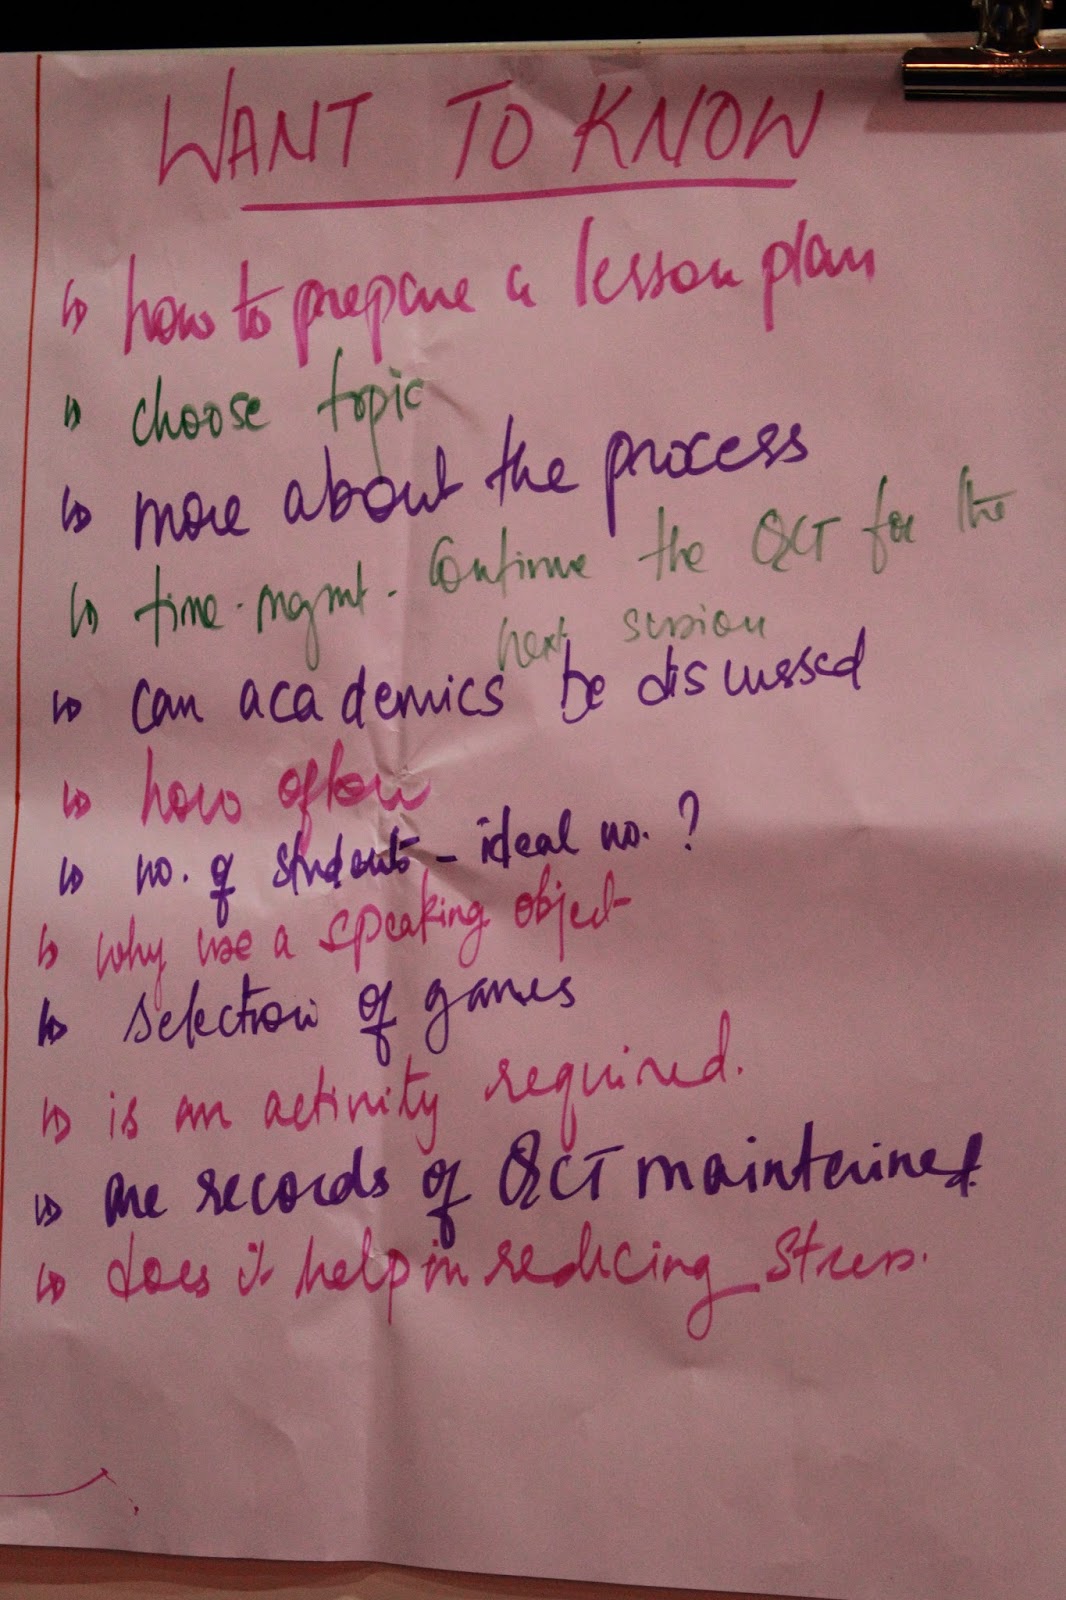 WANT TO KNOW
how to prepare a lesson plan
choose topic
more about the process
time-mgmt - Continue the QCT for the
next session
can academics be discussed
how often
no. of students - ideal no. ?
why use a speaking object
selection of games
is an activity required.
are records of QCT maintained.
does it help in reducing stress.